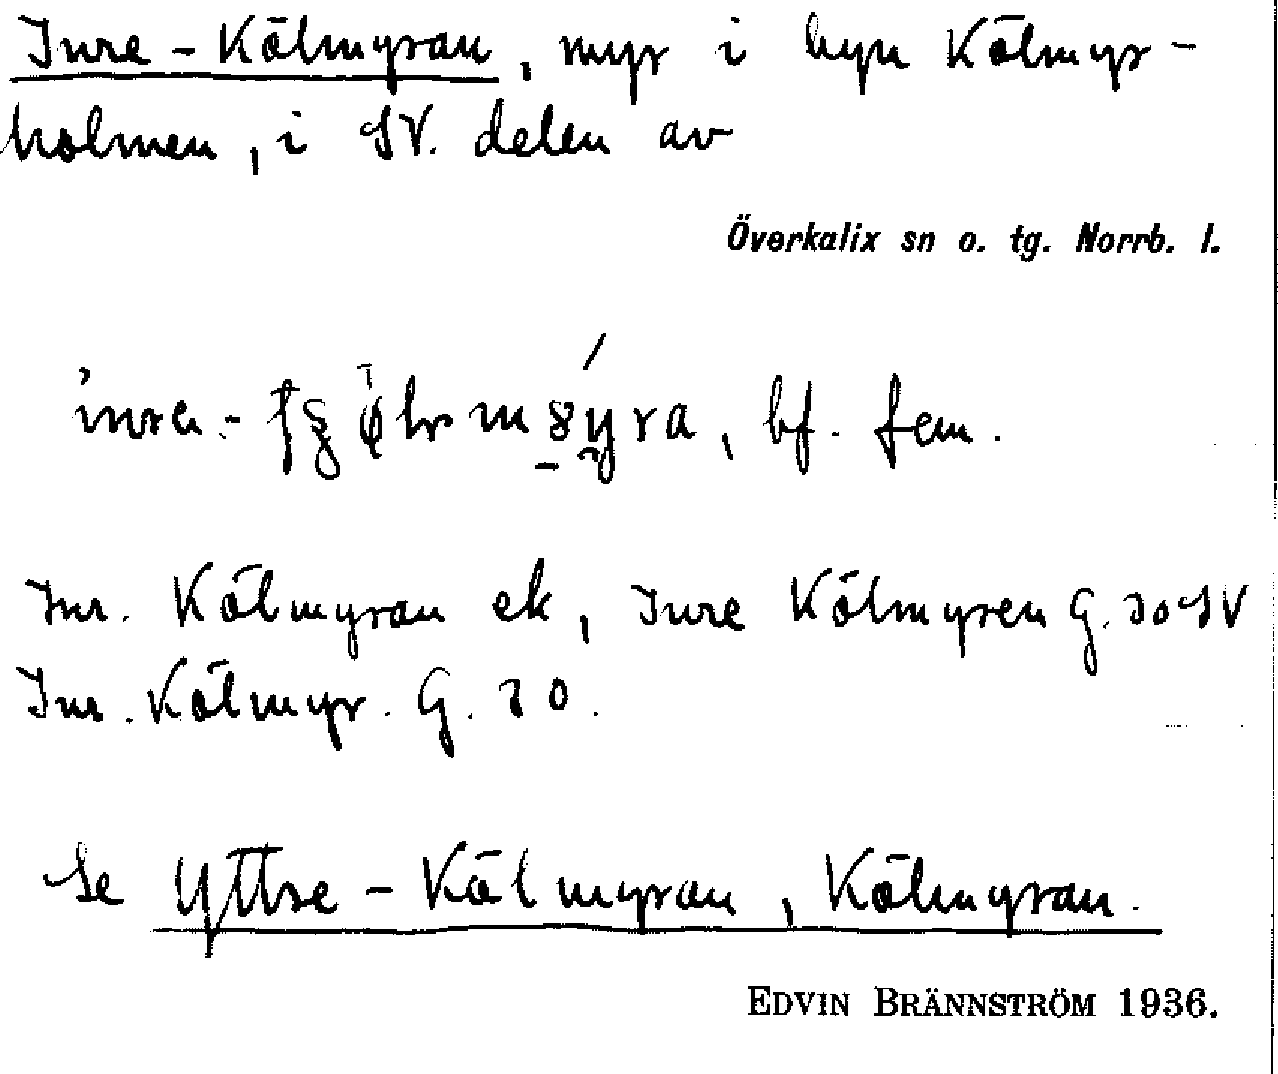 Inre-Kölmyran, myr i byn Kölmyr-
holmen, i SV. delen av
Överkalix sn o. tg. Norrb. l.
bf. fem.
Inr. Kölmyran ek, Inre Kölmyren G. 30 SV
Inr. Kölmyr. G. 30.
Se Yttre-Kölmyran, Kölmyran.
EDVIN BRÄNNSTRÖM 1936.